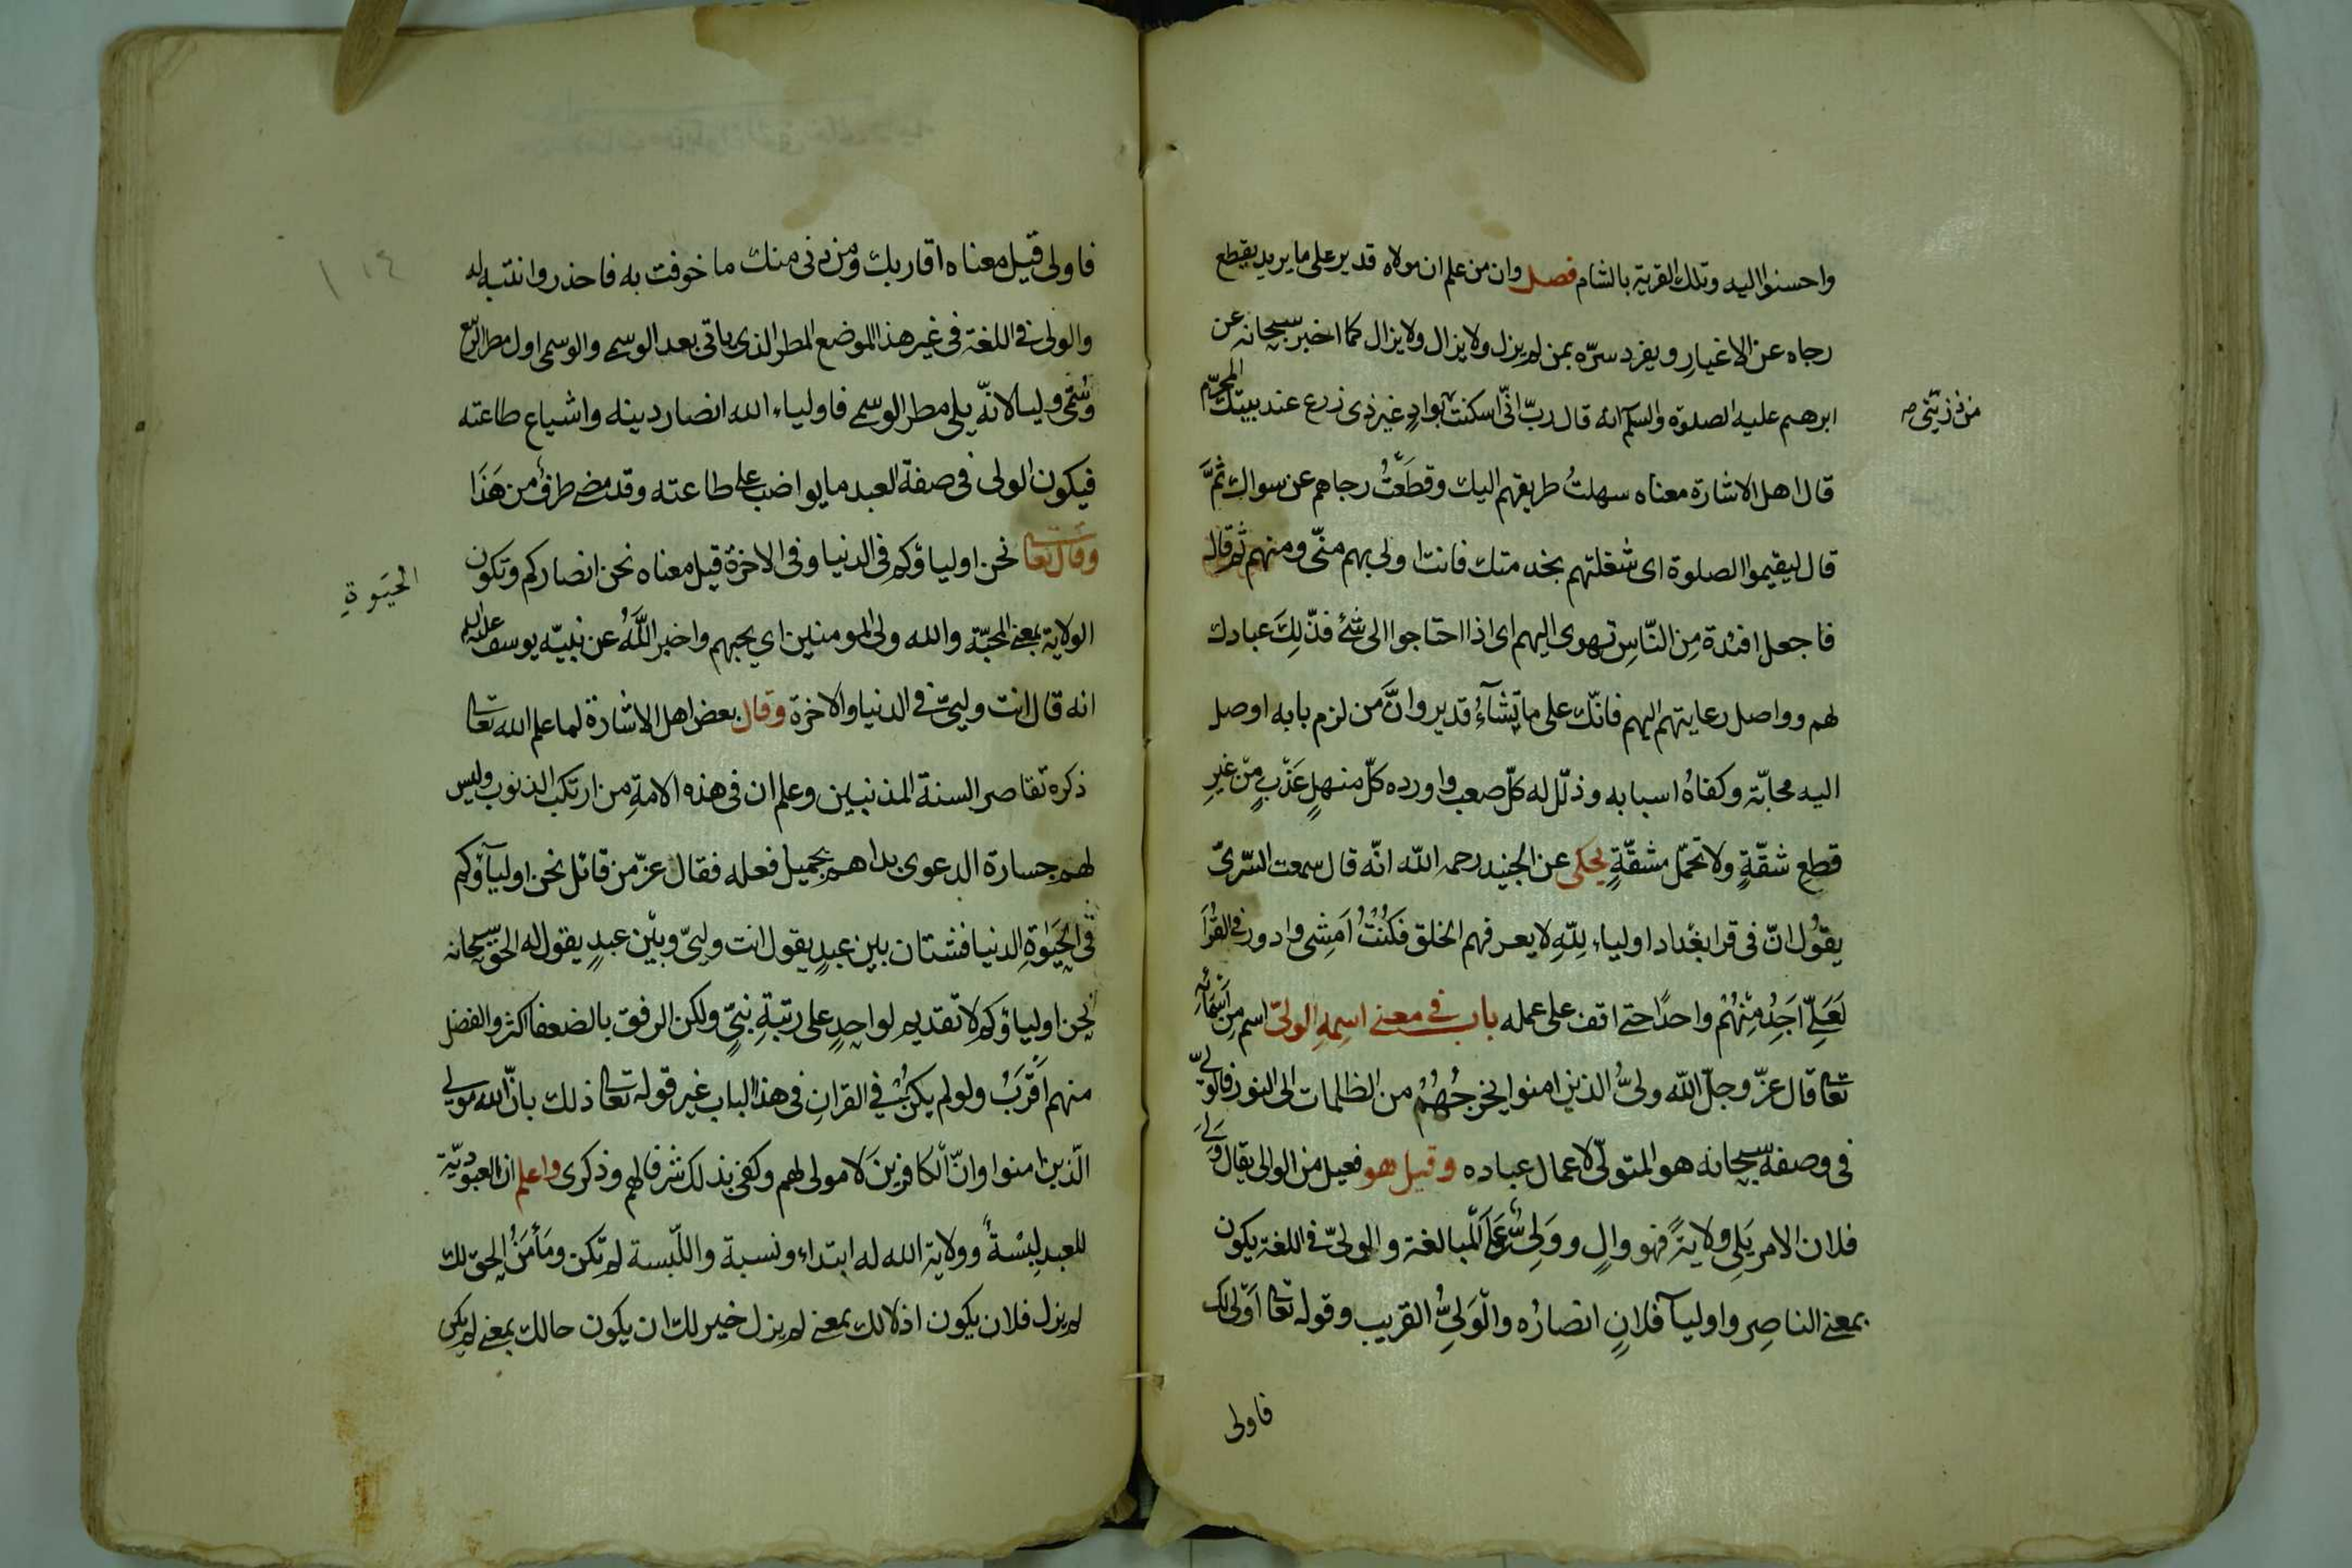 واحسنوا اليه وتلك القرية بالشام فصل وان من علم ان مولاه قدير على ما يريد يقطع
رجاه عن الاغيار ويفرد سرّه بمن لم يزل ولا يزال ولا يزال كما اخبر سبحانه عن
ابرهيم عليه الصلوة والسلم انه قال ربّ انّى اسكنت بوادٍ غير ذى زرع عند بيتك المحرّم
من ذرّيّتى صه
قال اهل الاشارة معناه سهلتُ طريقهم اليك وقطَعتُ رجاهم عن سواك ثمَّ
قال ليقيموا الصلوة اى شغلتهم بخدمتك فانت اولى بهم منّى ومنهم ثم قال
فاجعل افئدة مِن النّاسِ تهوى اليهم اى اذا احتاجوا الى شئ فذلّلِك عبادك
لهم وواصل رعايتهم اليهم فانّك على ما تشآءُ قدير وانَّ من لزم بابه اوصل
اليه محابّه وكفاهُ اسبابه وذلّل له كلّ صعب واورده كلّ منهلٍ عَذْبٍ مّن غيرِ
قطع شقّةٍ ولا تحمّل مشقّةٍ يحكى عن الجنيد رحمه الله انّه قال سمعت السّرىّ
يقوُل انّ فى قرا بغداد اولياء لِلّهِ لا يعرفهم الخلق فكُنْتُ اَمشِى وادور فى القُرَا
لَعَلّى اَجِدُ مِنْهُمْ واحدًا حتى اقف على عمله باب فى معنى اسمِهِ الولىّ اسم مِن اَسْمَائه
تعالى قال عزّ وجلّ الله ولىُّ الذين امنوا يخرجُهُمْ من الظلمات الى النور فالولىّ
فى وصفه سبحانه هو المتولّى لاعمال عباده وقيل هو فعيل من الوالى يقال وَلِىَ
فلان الامر يَلِى ولايةً فهو والٍ ووَلِىٌّ عَلَى المبالغة والولىّ فى اللغة يكون
بمعنى الناصِر واوليآ فلانٍ انصارُه والوَلِىُّ القريب وقوله تعالى اَوْلَى لَك
فاولى
فاولى قيل معناه اقاربك ومن دنى منك ما خوفت به فاحذر وانتبه له
والولى فى اللغة فى غير هذا الموضع المطر الذى ياتى بعد الوسمى والوسمى اول مطر الربيع
وسُمّى وليا لانّه يلى مطر الوسمى فاولياء الله انصار دينه واشياع طاعته
فيكون الولى فى صفة العبد ما يواضب على طاعته وقد مضى طرفٌ من هَذَا
وقال تعالى نحن اولياؤكم فى الدنيا وفى الاخرة قيل معناه نحن انصاركم وتكون
الحيَوةِ
الولاية بمعنى المحبّة والله ولى المومنين اى يحبهم واخبر اللّهُ عن نبيّه يوسف عليه السلم
انه قال انت وليىّ فى الدنيا والاخرة وقال بعض اهل الاشارة لما علم الله تعالى
ذكره تقاصر السنة المذنبين وعلم ان فى هذه الامةِ من ارتكب الذنوب وليس
لهم جسارة الدعوى بداهم بجميل فعله فقال عزّ من قائل نحن اوليآؤكم
فى الحيَوةِ الدنيا فشتان بين عبدٍ يقول انت وليىّ وبيْن عبدٍ يقول له الحق سبحانه
نحن اولياؤكم لا تقديم لواحدٍ على رتبةِ نبىٍّ ولكن الرفق بالضعفا اكثر والفضل
منهم اَقْرَبُ ولو لم يكن فى القرانِ فى هذا الباب غير قوله تعالى ذلك بانّ الله مولى
الّذين امنوا وانّ الكافرينَ لا مولى لهم وكفى بذلك شرفا لهم وذكرى واعلم ان العبوديّة
للعبد لِبْسْةً وولاية الله له ابتداء ونسبة واللّبسة لم تكن ومَأمَنُ الحق لك
لم يزل فلان يكون اذلالك بمعنى لم يزل خير لك ان يكون حالك بمعنى لم يكن